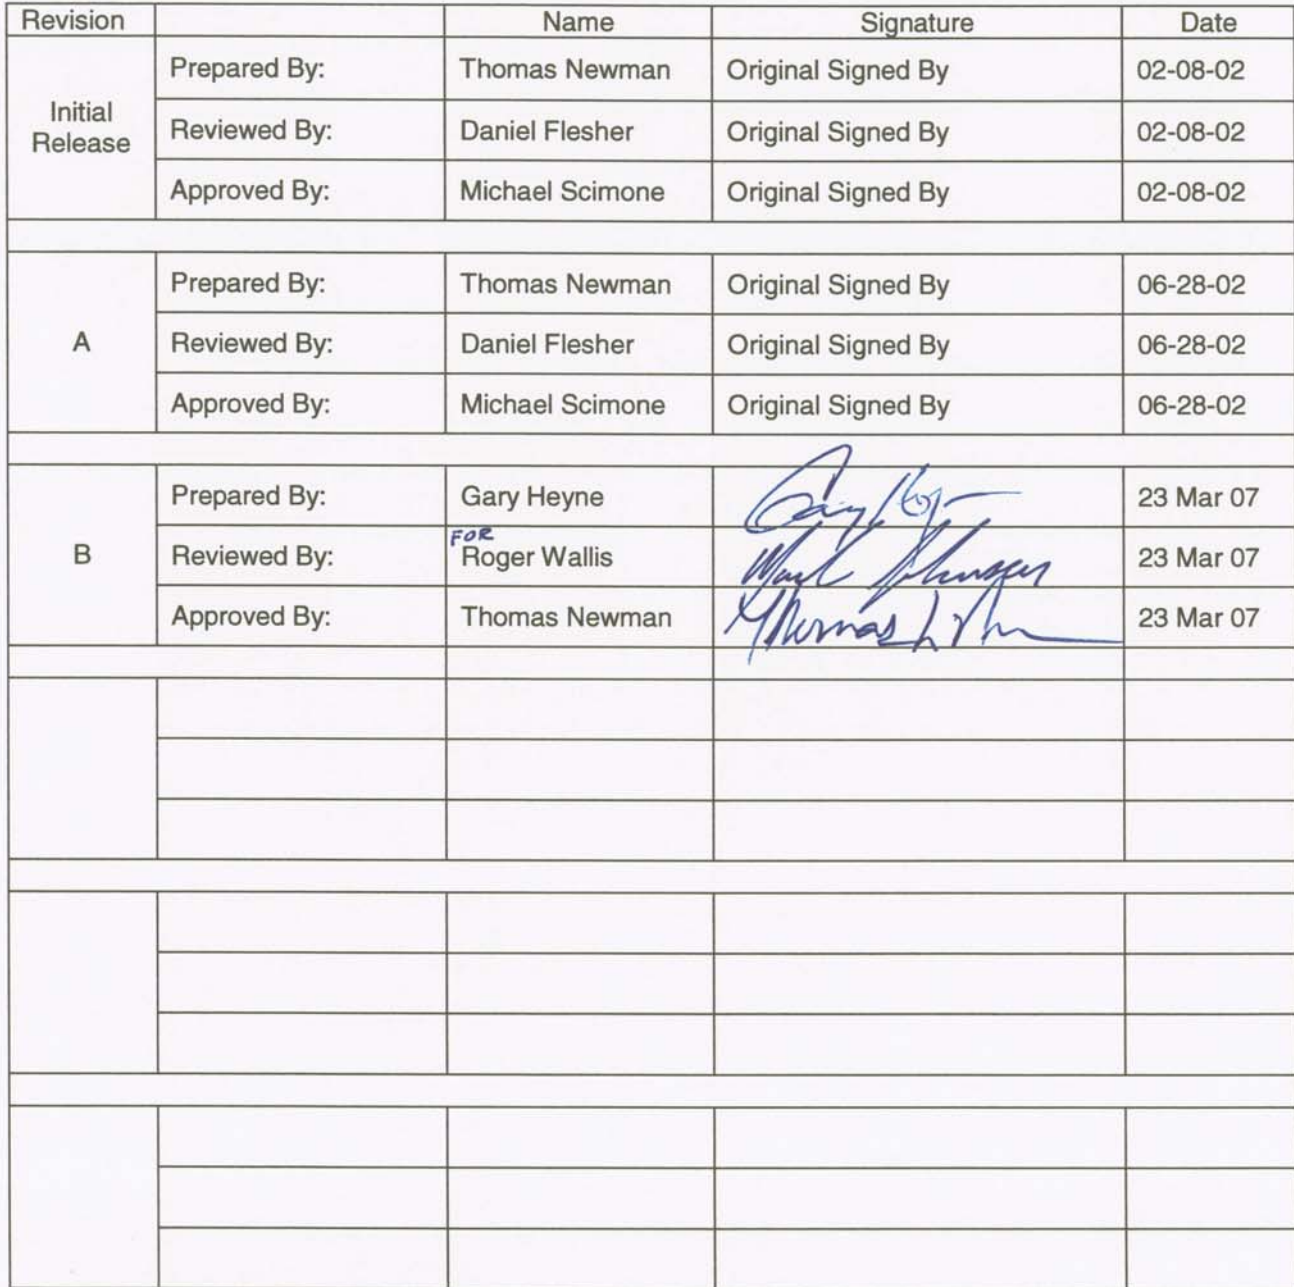 Revision Name Signature Date
Prepared By: Thomas Newman Original Signed By 02-08-02
Initial Release
Reviewed By: Daniel Flesher Original Signed By 02-08-02
Approved By: Michael Scimone Original Signed By 02-08-02
Prepared By: Thomas Newman Original Signed By 06-28-02
A Reviewed By: Daniel Flesher Original Signed By 06-28-02
Approved By: Michael Scimone Original Signed By 06-28-02
Prepared By: Gary Heyne 23 Mar 07
FOR
B Reviewed By: Roger Wallis Mark Johnson 23 Mar 07
Approved By: Thomas Newman Thomas 23 Mar 07